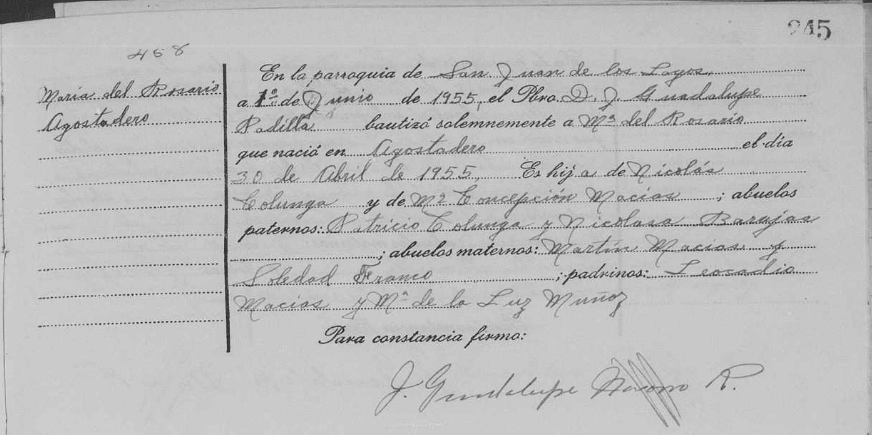 245
458
Maria del Rosario
Agostadero
En la parroquia de San Juan de los Lagos,
a 1º de Junio de 1955, el Pbro. D. J Guadalupe
Padilla bautizó solemnemente a Mª del Rosario
que nació en Agostadero el día
30 de Abril de 1955, Es hija de Nicolás
Colunga y de Mª Concepción Macias ; abuelos
paternos: Patricio Colunga y Nicolasa Barajas
; abuelos maternos: Martín Macias y
Soledad Franco ; padrinos: Leocadio
Macias y Mª de la Luz Muñoz
Para constancia firmo:
J. Guadalupe R.